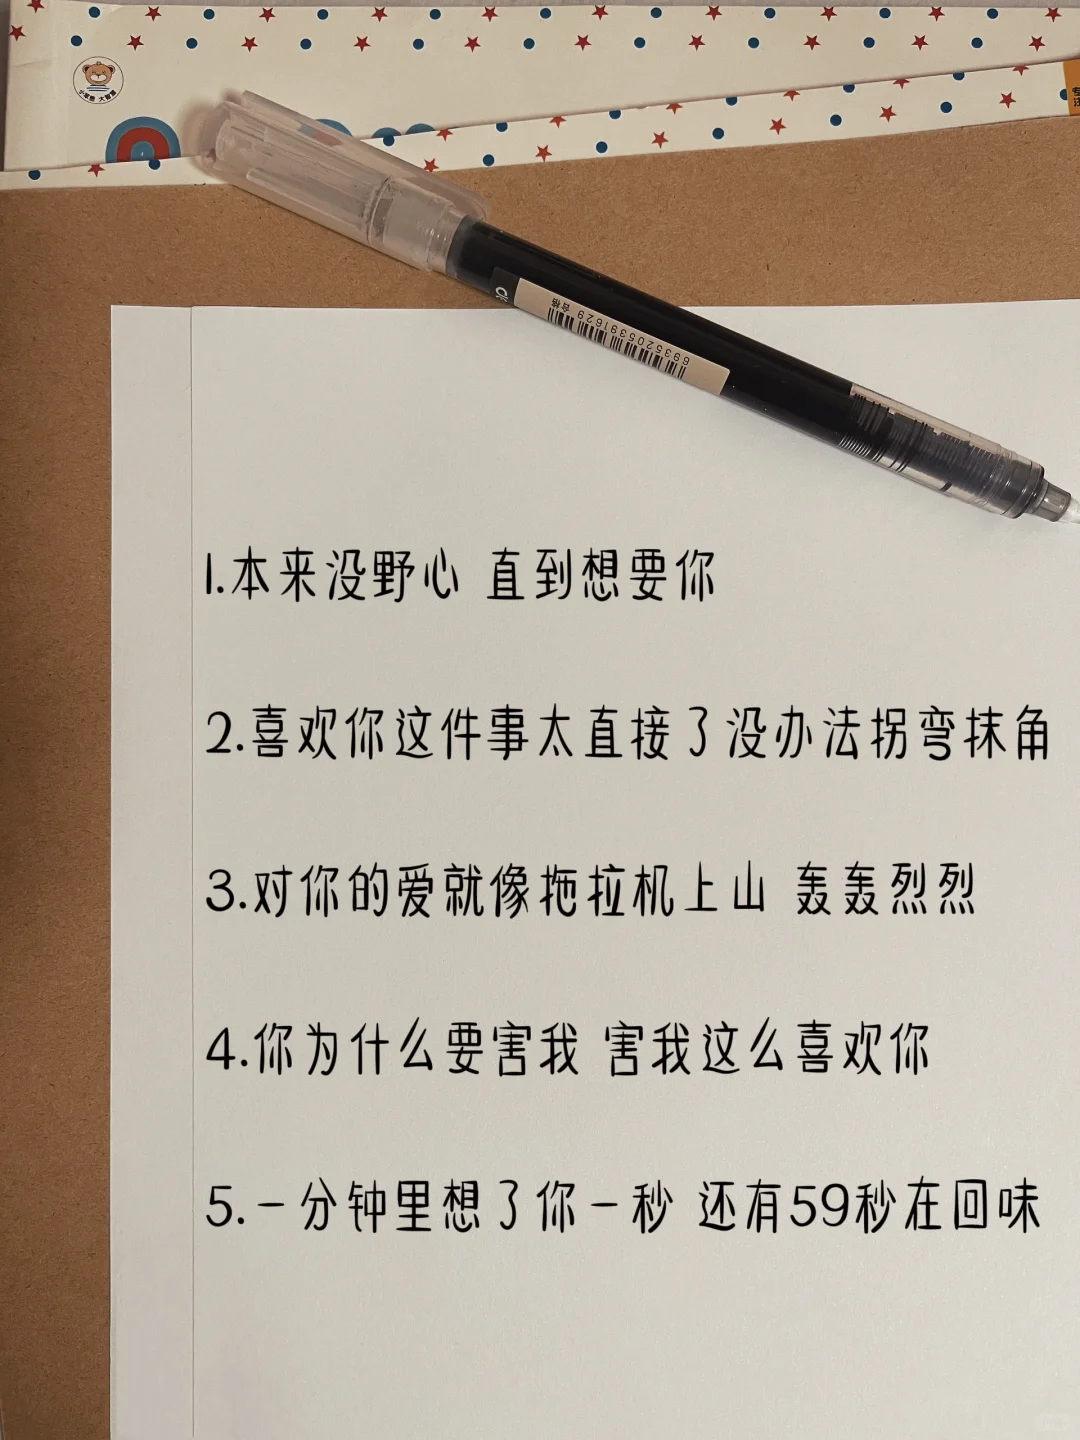 小笨熊 大智慧
专注
CK
合格
6935205391629
1.本来没野心 直到想要你
2.喜欢你这件事太直接了没办法拐弯抹角
3.对你的爱就像拖拉机上山 轰轰烈烈
4.你为什么要害我 害我这么喜欢你
5.一分钟里想了你一秒 还有59秒在回味